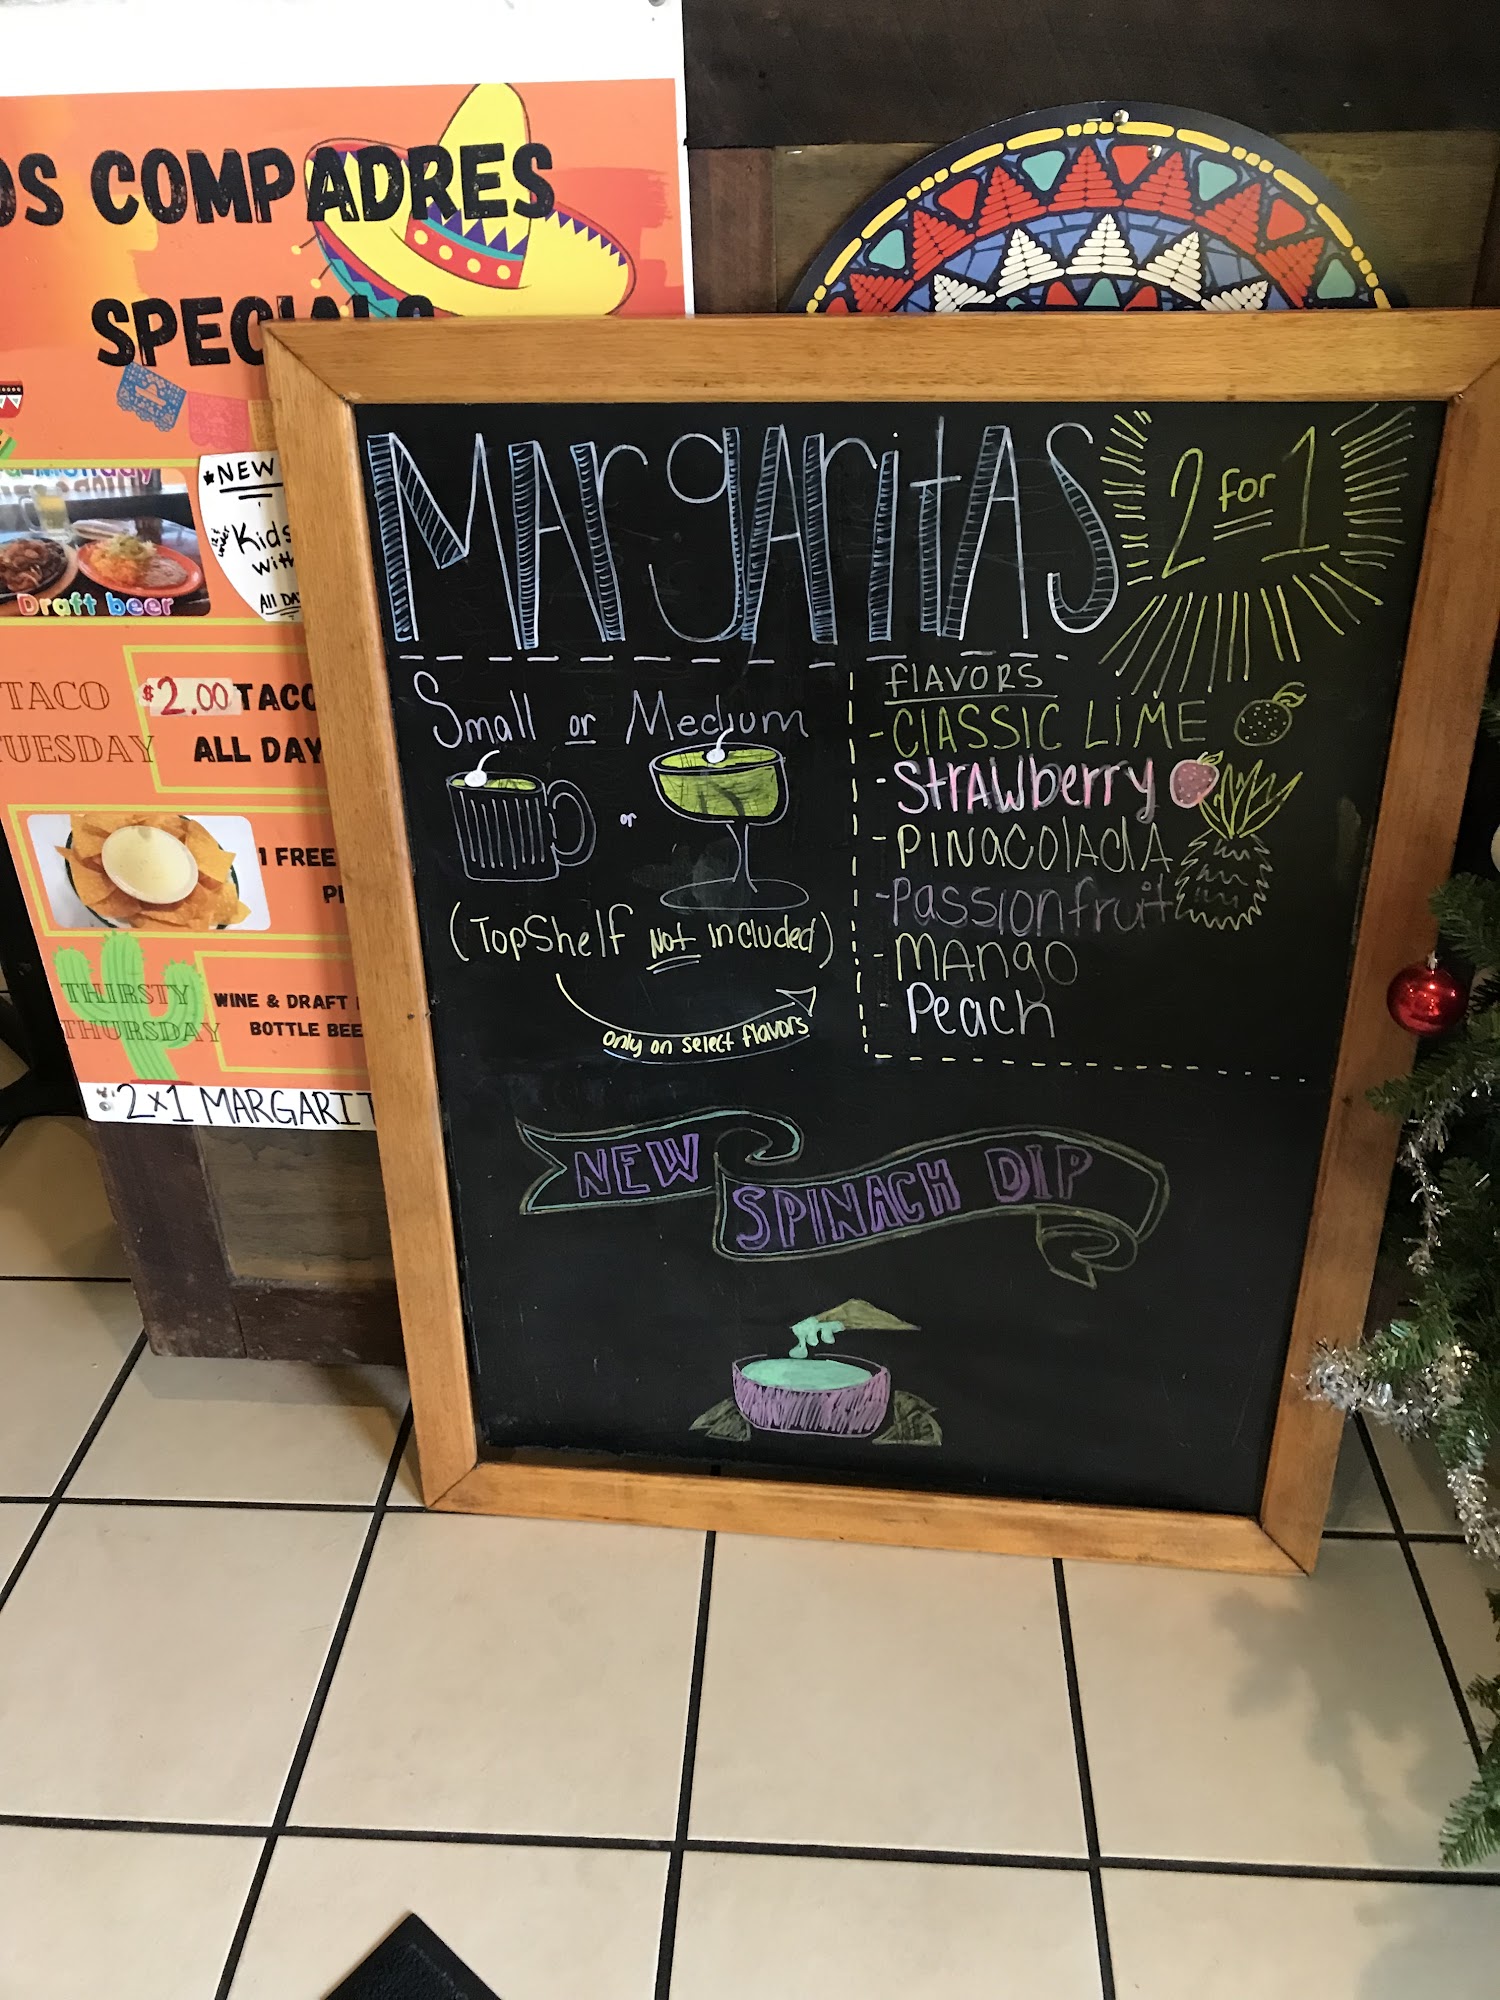 OS COMPADRES
SPECIALS
Monday
Draft beer
★NEW
Kids
With
All DA
TACO
TUESDAY
$2.00 TACO
ALL DAY
1 FREE
THIRSTY
THURSDAY
WINE & DRAFT
BOTTLE BEE
2x1 MARGARIT
MArgAritAS
2 for 1
Small or Medium
or
(TopShelf Not included)
only on select flavors
flAVORS
-ClASSIC LiME
-StrAWberry
-PiNACOlAdA
-PAssionfruit
-MAngo
- Peach
NEW
SPINACH DIP